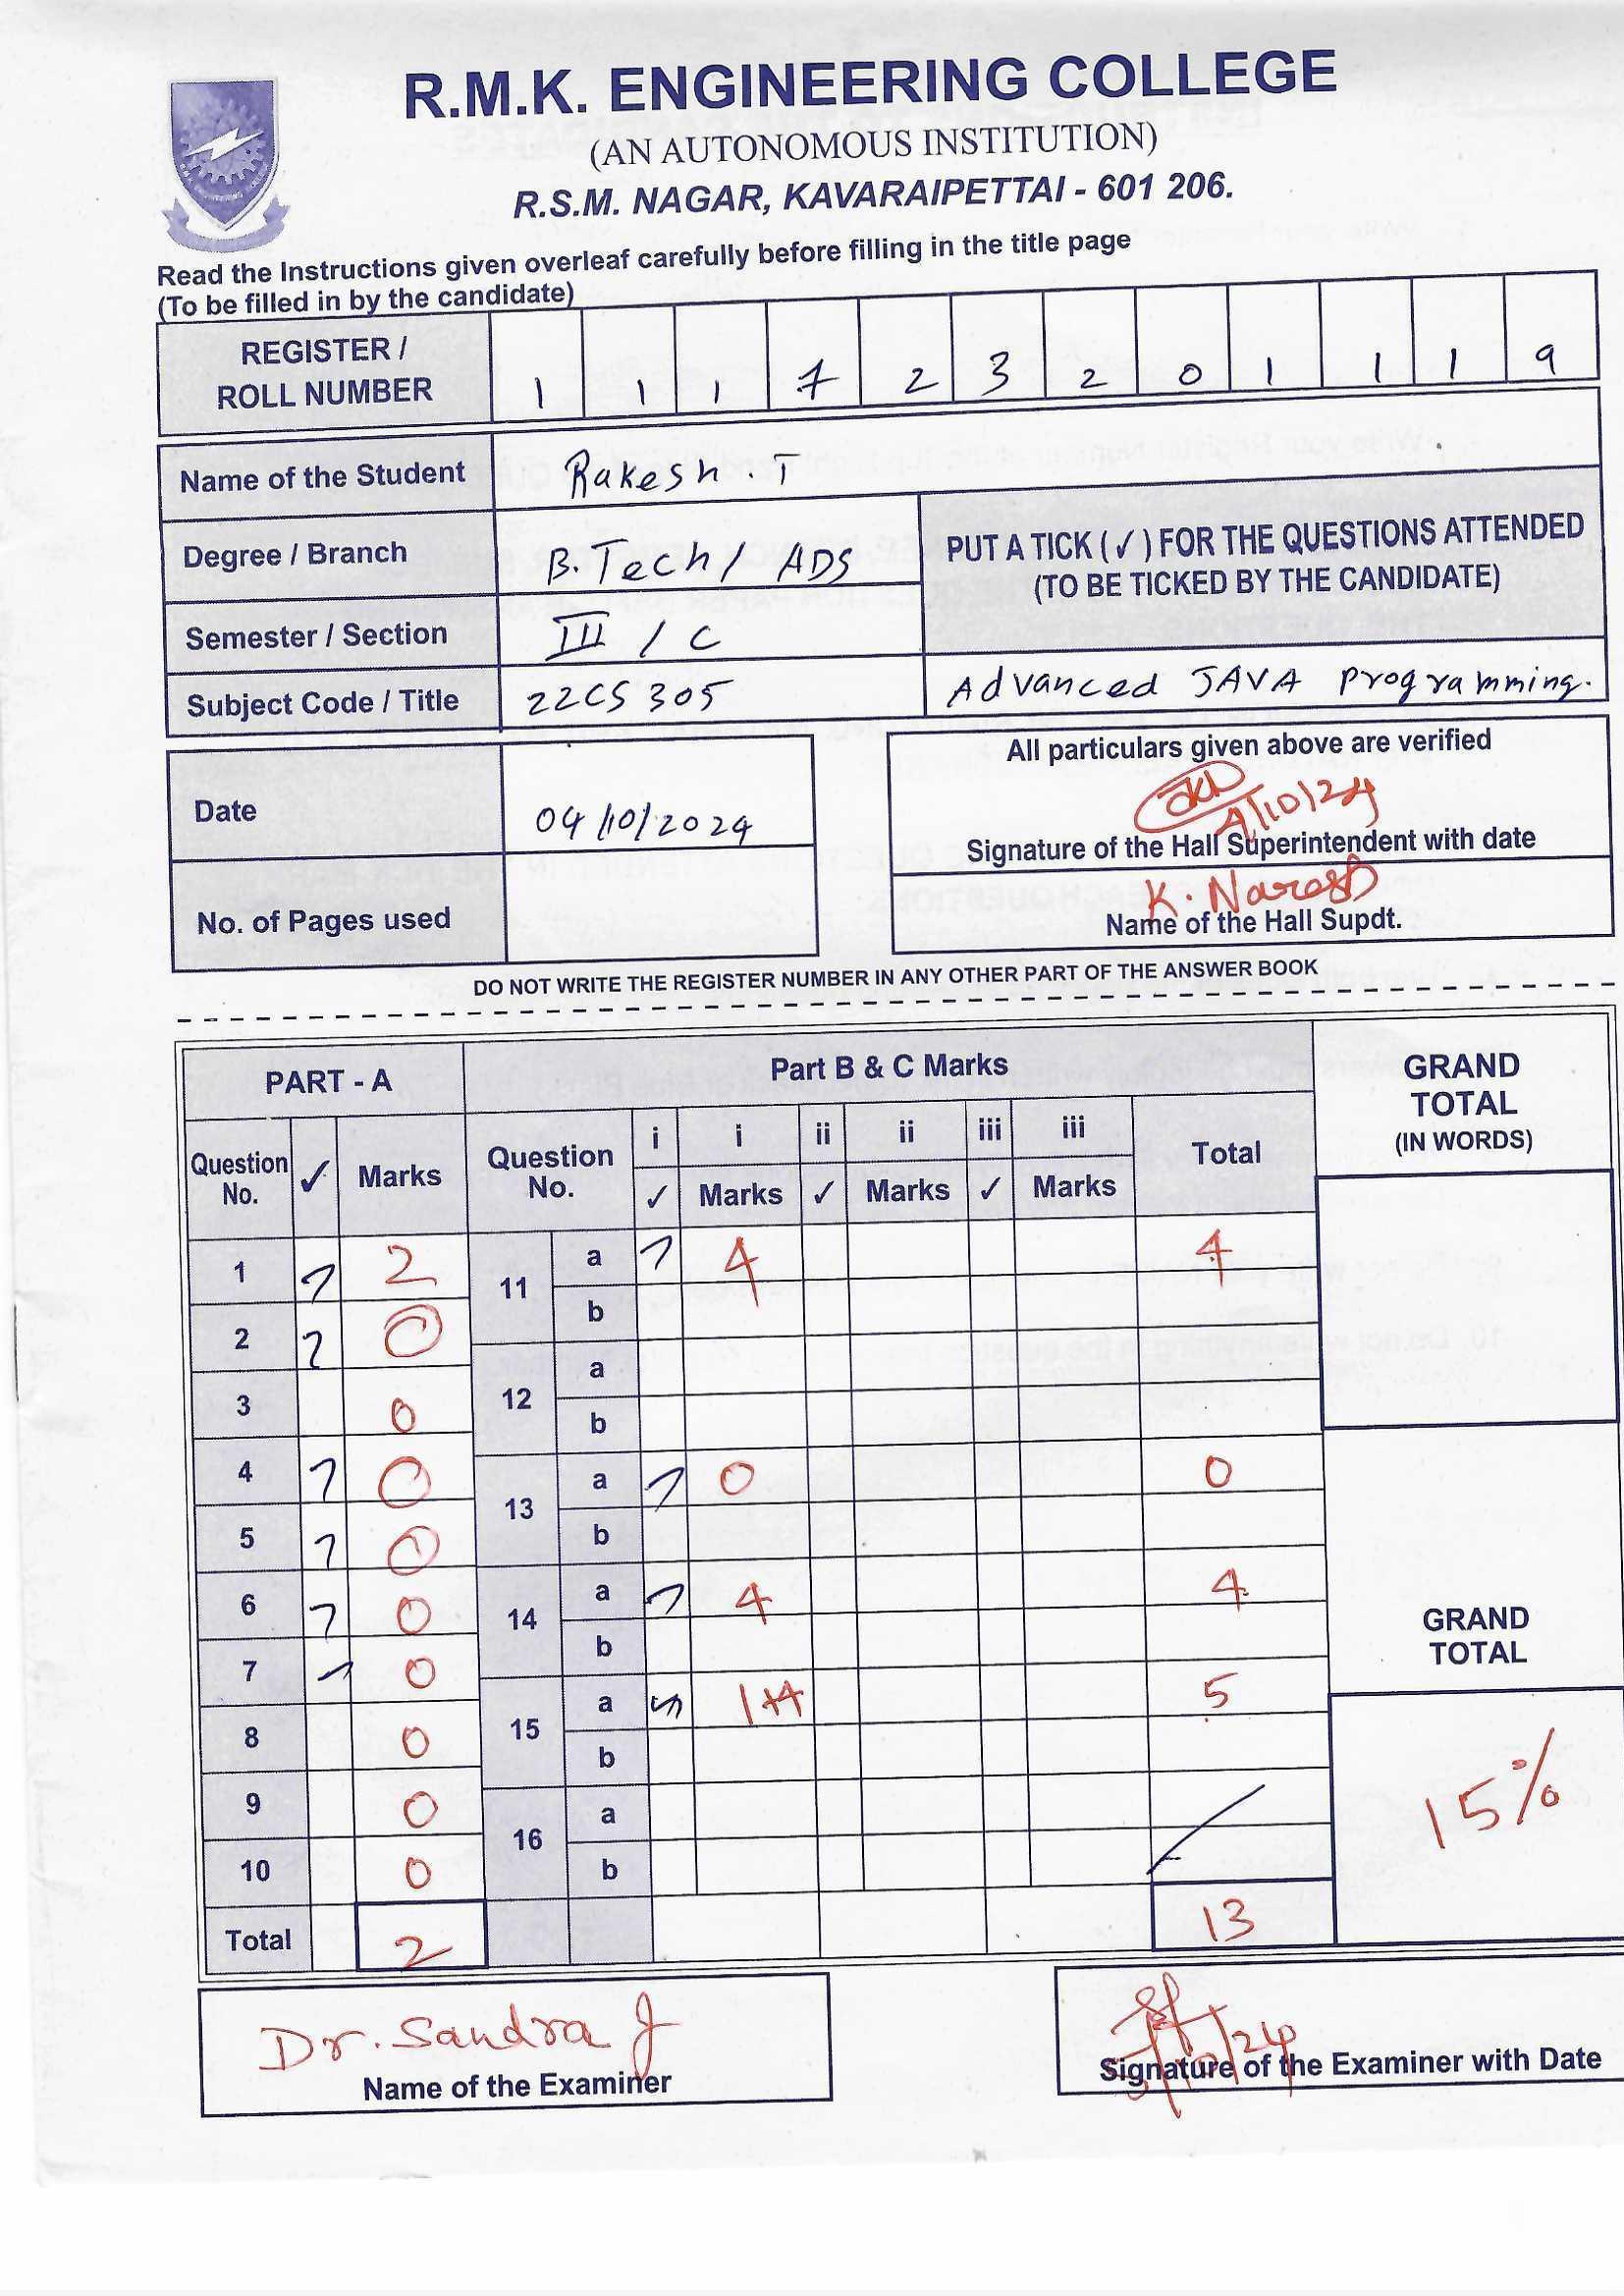 R.M.K. ENGINEERING COLLEGE
(AN AUTONOMOUS INSTITUTION)
R.S.M. NAGAR, KAVARAIPETTAI - 601 206.
Read the Instructions given overleaf carefully before filling in the title page
(To be filled in by the candidate)
REGISTER /
ROLL NUMBER
1 1 1 7 2 3 2 0 1 1 1 9
Name of the Student Rakesh . T
Degree / Branch B.Tech / ADS
PUT A TICK (✓) FOR THE QUESTIONS ATTENDED
(TO BE TICKED BY THE CANDIDATE)
Semester / Section III / C
Subject Code / Title 22CS305 Advanced JAVA Programming.
All particulars given above are verified
Date 04/10/2024
4/10/24
Signature of the Hall Superintendent with date
K. Naresh
No. of Pages used
Name of the Hall Supdt.
DO NOT WRITE THE REGISTER NUMBER IN ANY OTHER PART OF THE ANSWER BOOK
PART - A Part B & C Marks GRAND
TOTAL
(IN WORDS)
Question No. ✓ Marks Question No. i ✓ i Marks ii ✓ ii Marks iii ✓ iii Marks Total
1 2 11 a 4 4
b
2 0
12 a
3 0 b
4 0 13 a 0 0
5 0 b
6 0 14 a 4 4
b
GRAND
TOTAL
7 0 15 a 1+4 5
8 0 b
9 0 16 a
15%
10 0 b
Total 2 13
Dr. Sandra J
Name of the Examiner
Signature of the Examiner with Date